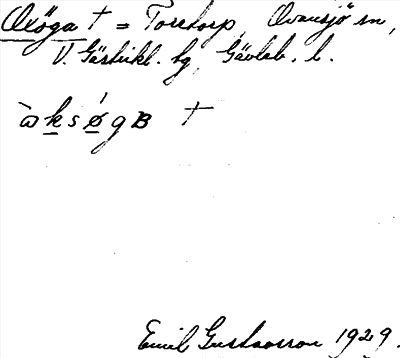 Oxöga † = Torstorp, Ovansjö sn,
V. Gästrikl. hg, Gävleb. l.
ὼksǿgʙ †
Emil Gustavsson 1929.